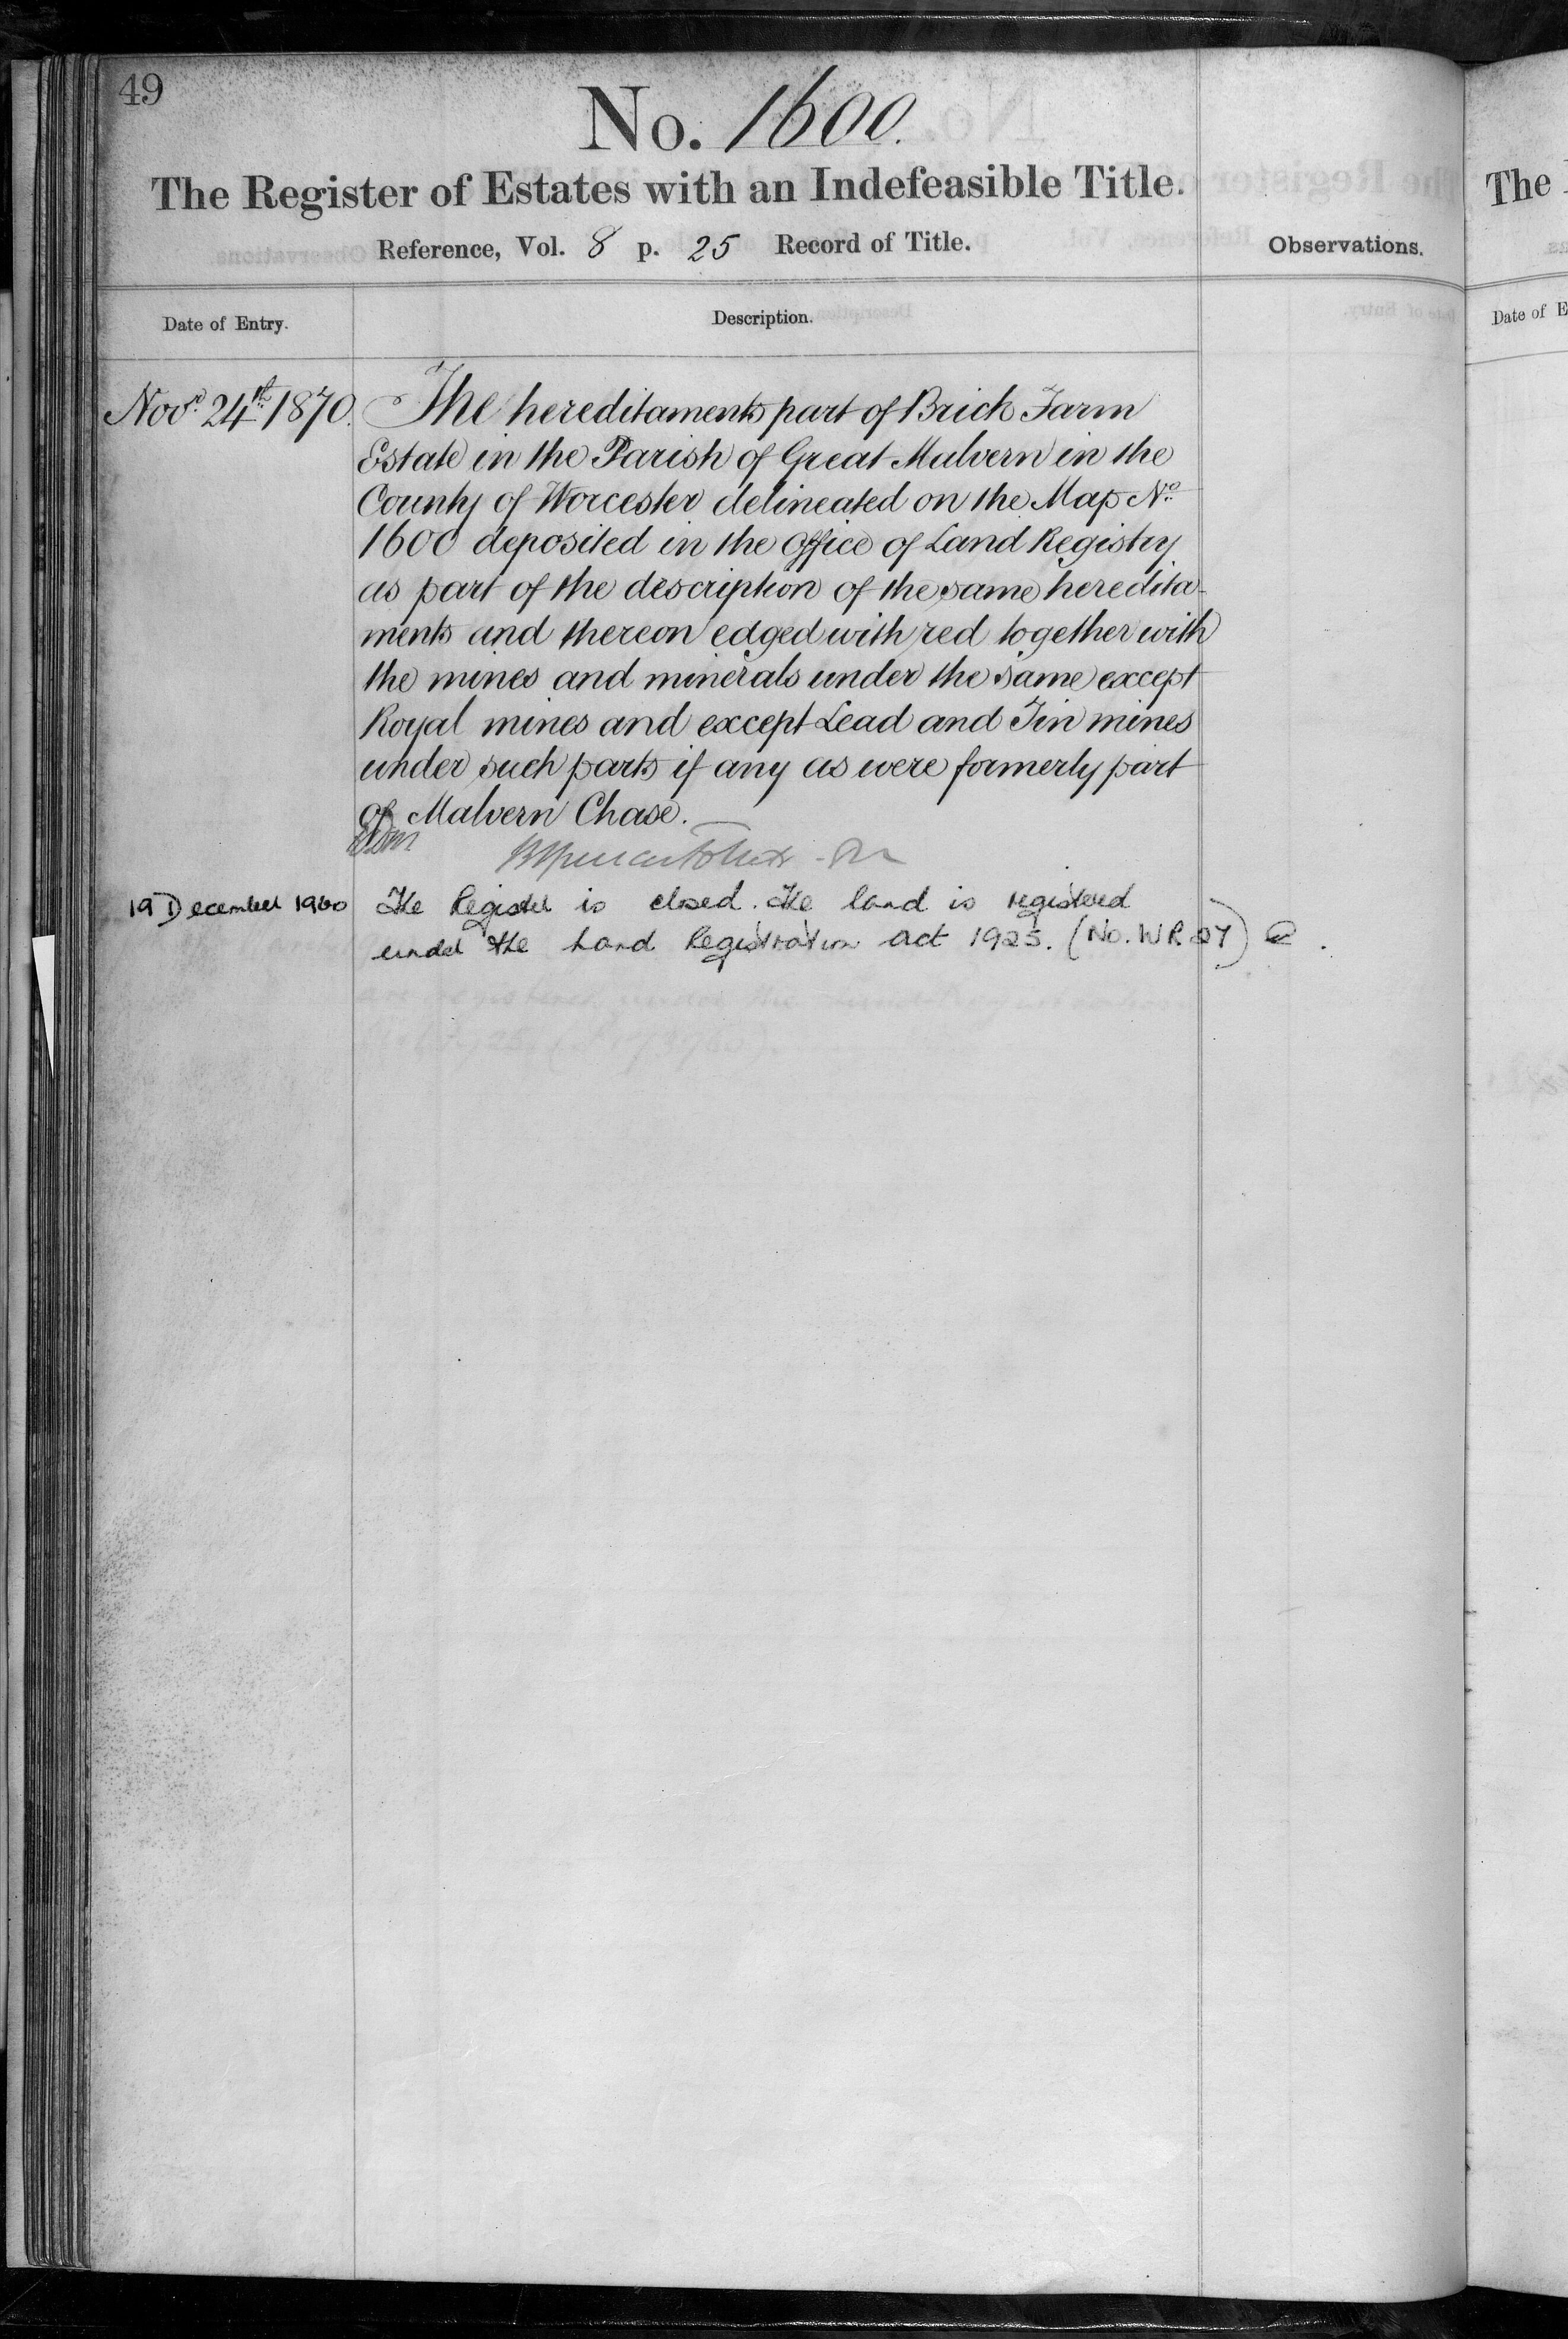 49
No. 1600.
The Register of Estates with an Indefeasible Title.
Reference, Vol. 8 p. 25 Record of Title.
Observations.
Date of Entry.
Description.
Novr. 24th. 1870.
The hereditaments part of Brick Farm
Estate in the Parish of Great Malvern in the
County of Worcester delineated on the Map No.
1600 deposited in the Office of Land Registry
as part of the description of the same heredita-
ments and thereon edged with red together with
the mines and minerals under the same except
Royal mines and except Lead and Tin mines
under such parts if any as were formerly part
of Malvern Chase.
19 December 1960
The Register is closed. The land is registered
under the Land Registration Act 1925. (No. WR 27)
The
Date of E